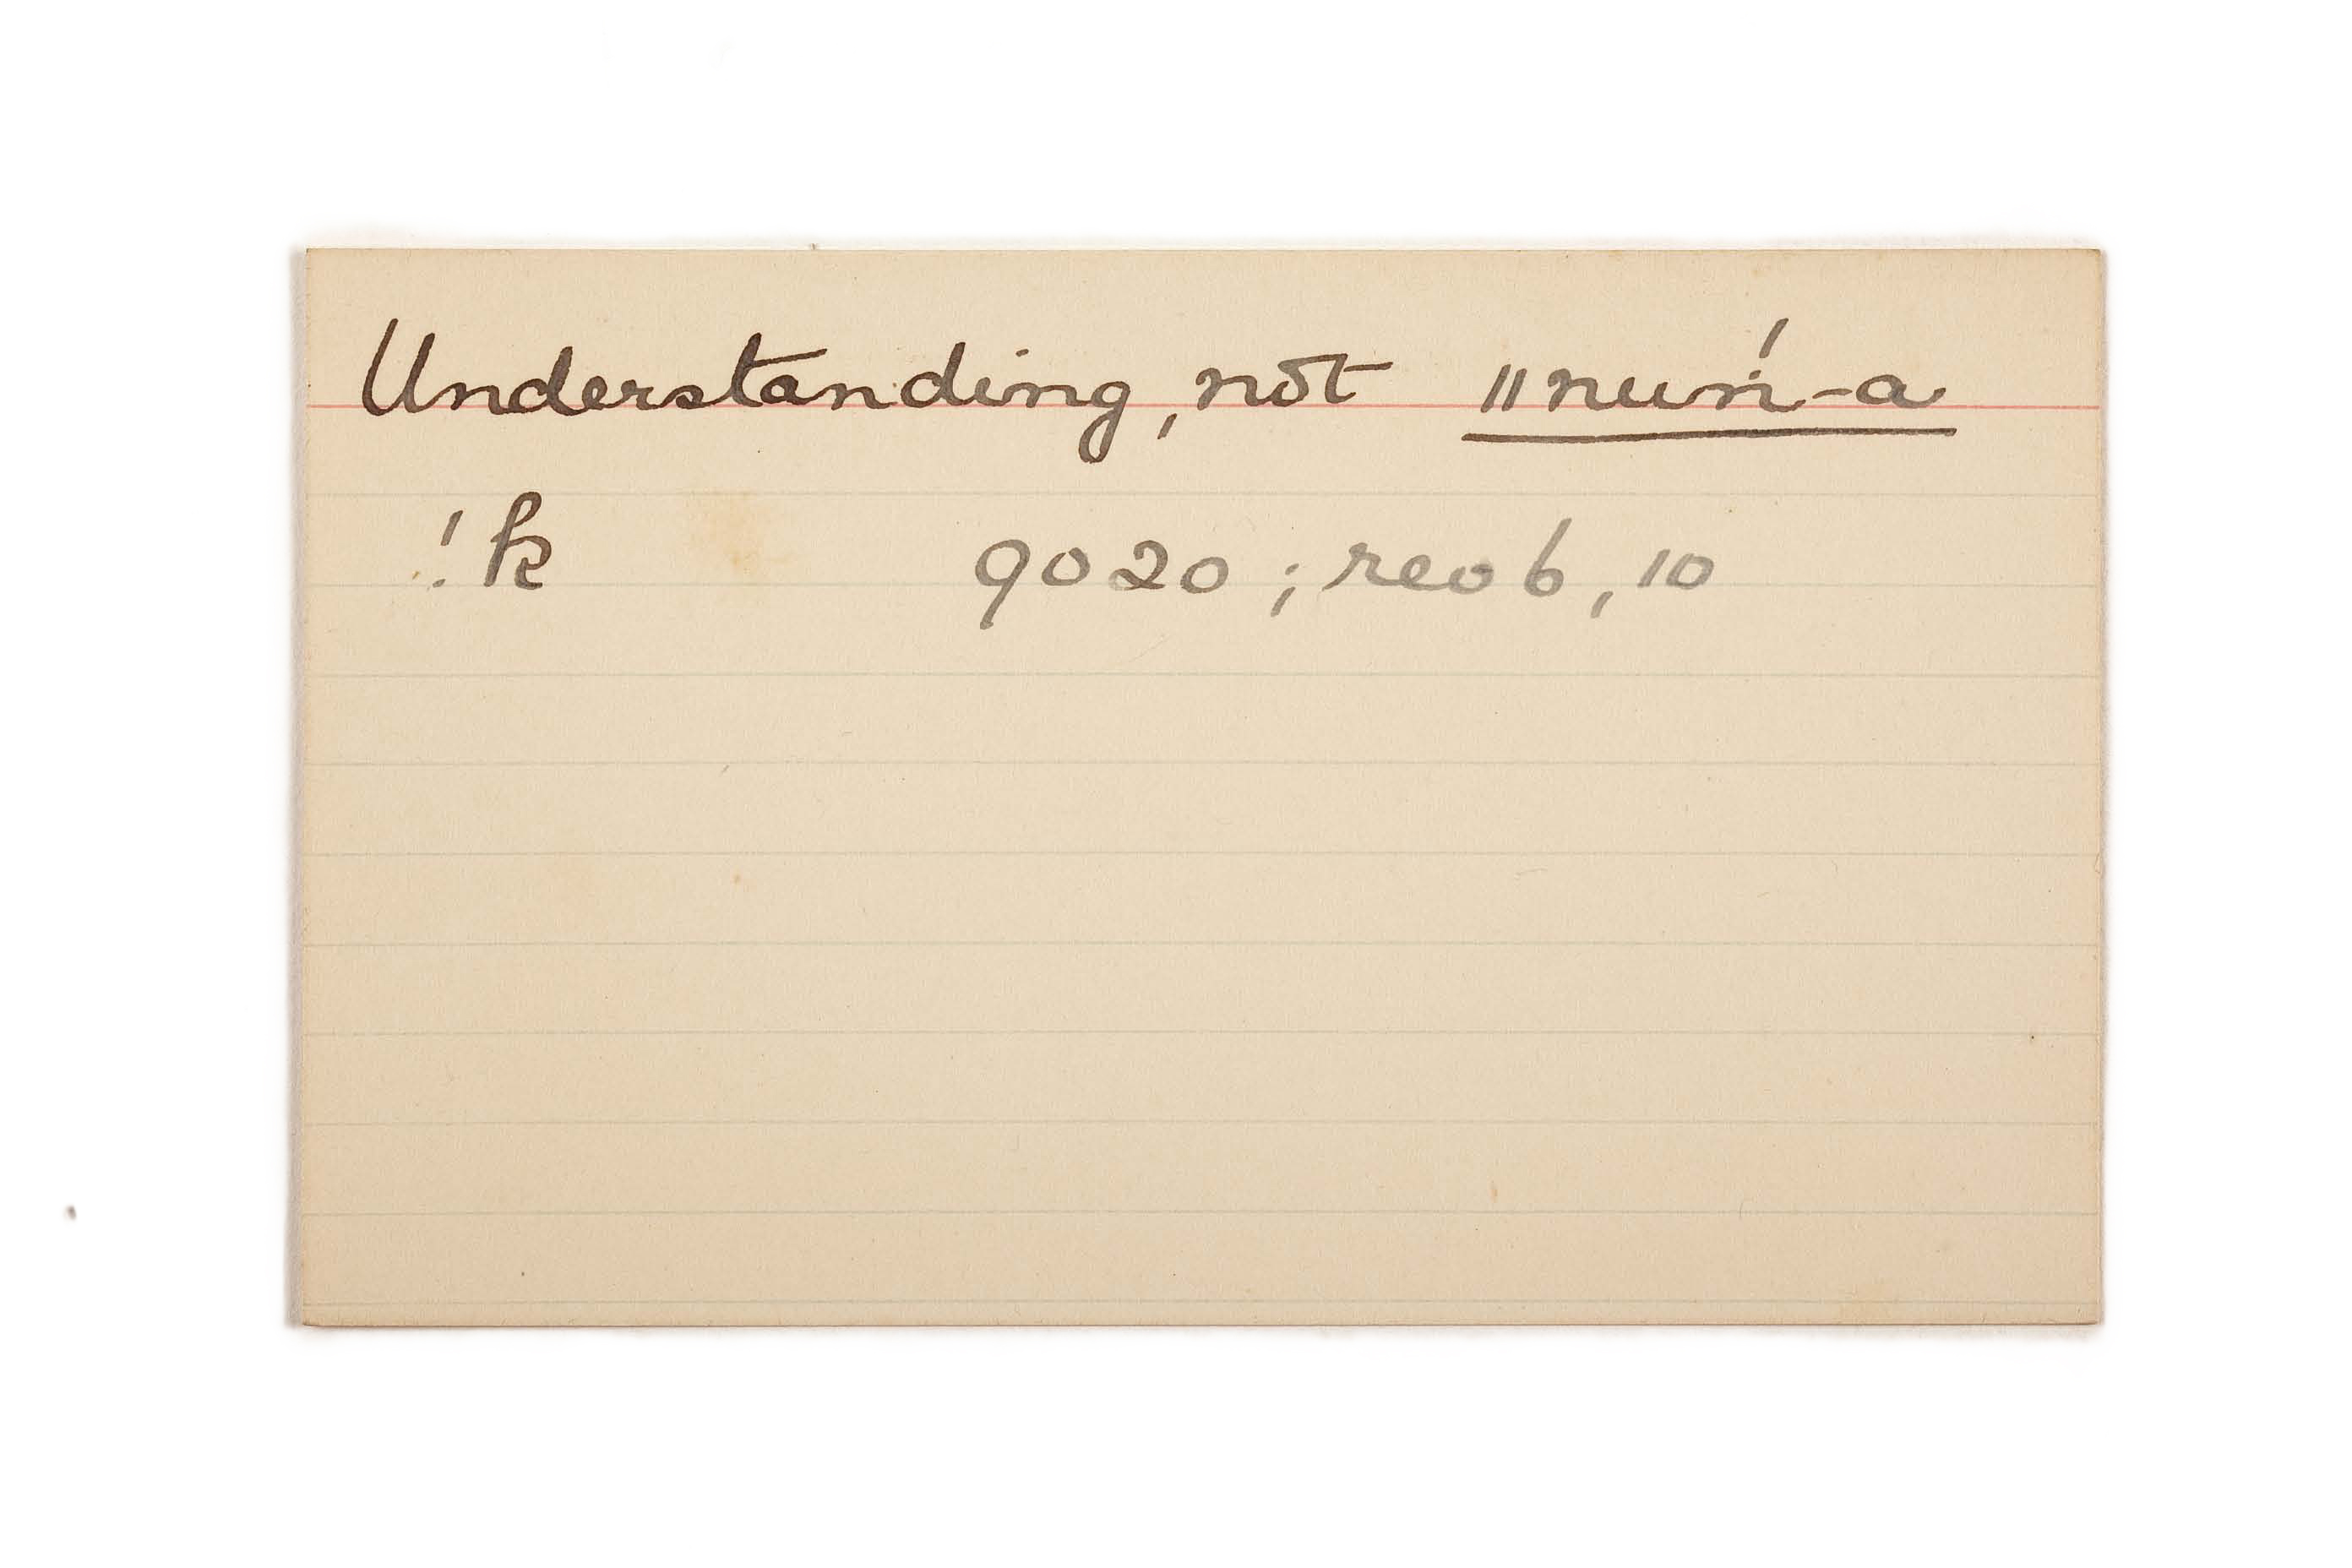 Understanding, not ǁnuṅ́-a
!k 9020; rev 6, 10